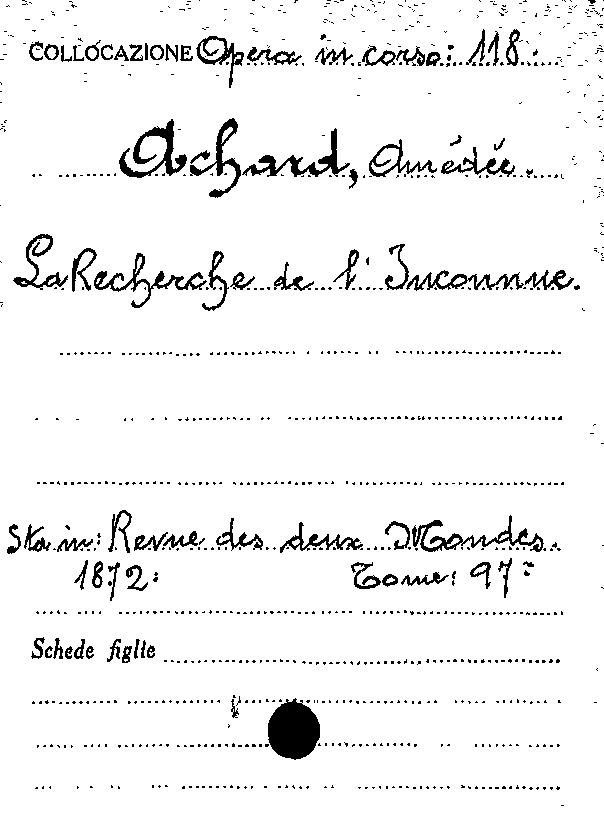 COLLOCAZIONE Opera in corso: 118.
Achard, Amédée.
La Recherche de l' Inconnue.
Sta in: Revue des deux Mondes.
1872: Tome: 97º
Schede figlie